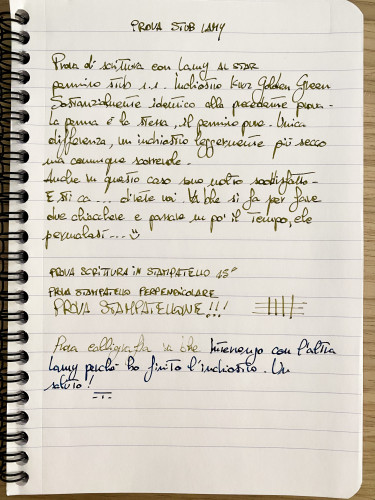 PROVA STUB LAMY
Prova di scrittura con Lamy AL STAR
pennino stub 1.1. Inchiostro Kwz Golden Green
Sostanzialmente identico alla precedente prova.
La penna è la stessa, il pennino pure. Unica
differenza, un inchiostro leggermente più secco
ma comunque scorrevole.
Anche in questo caso sono molto soddisfatto.
E sti ca... direte voi. Va be si fa per fare
due chiacchiere e passare un po' il tempo,
permalosi...
PROVA SCRITTURA IN STAMPATELLO 45°
PROVA STAMPATELLO PERPENDICOLARE
PROVA STAMPATELLONE!!!
Prova calligrafia va be Intervengo con l'altra
Lamy perché ho finito l'inchiostro. Un
saluto!